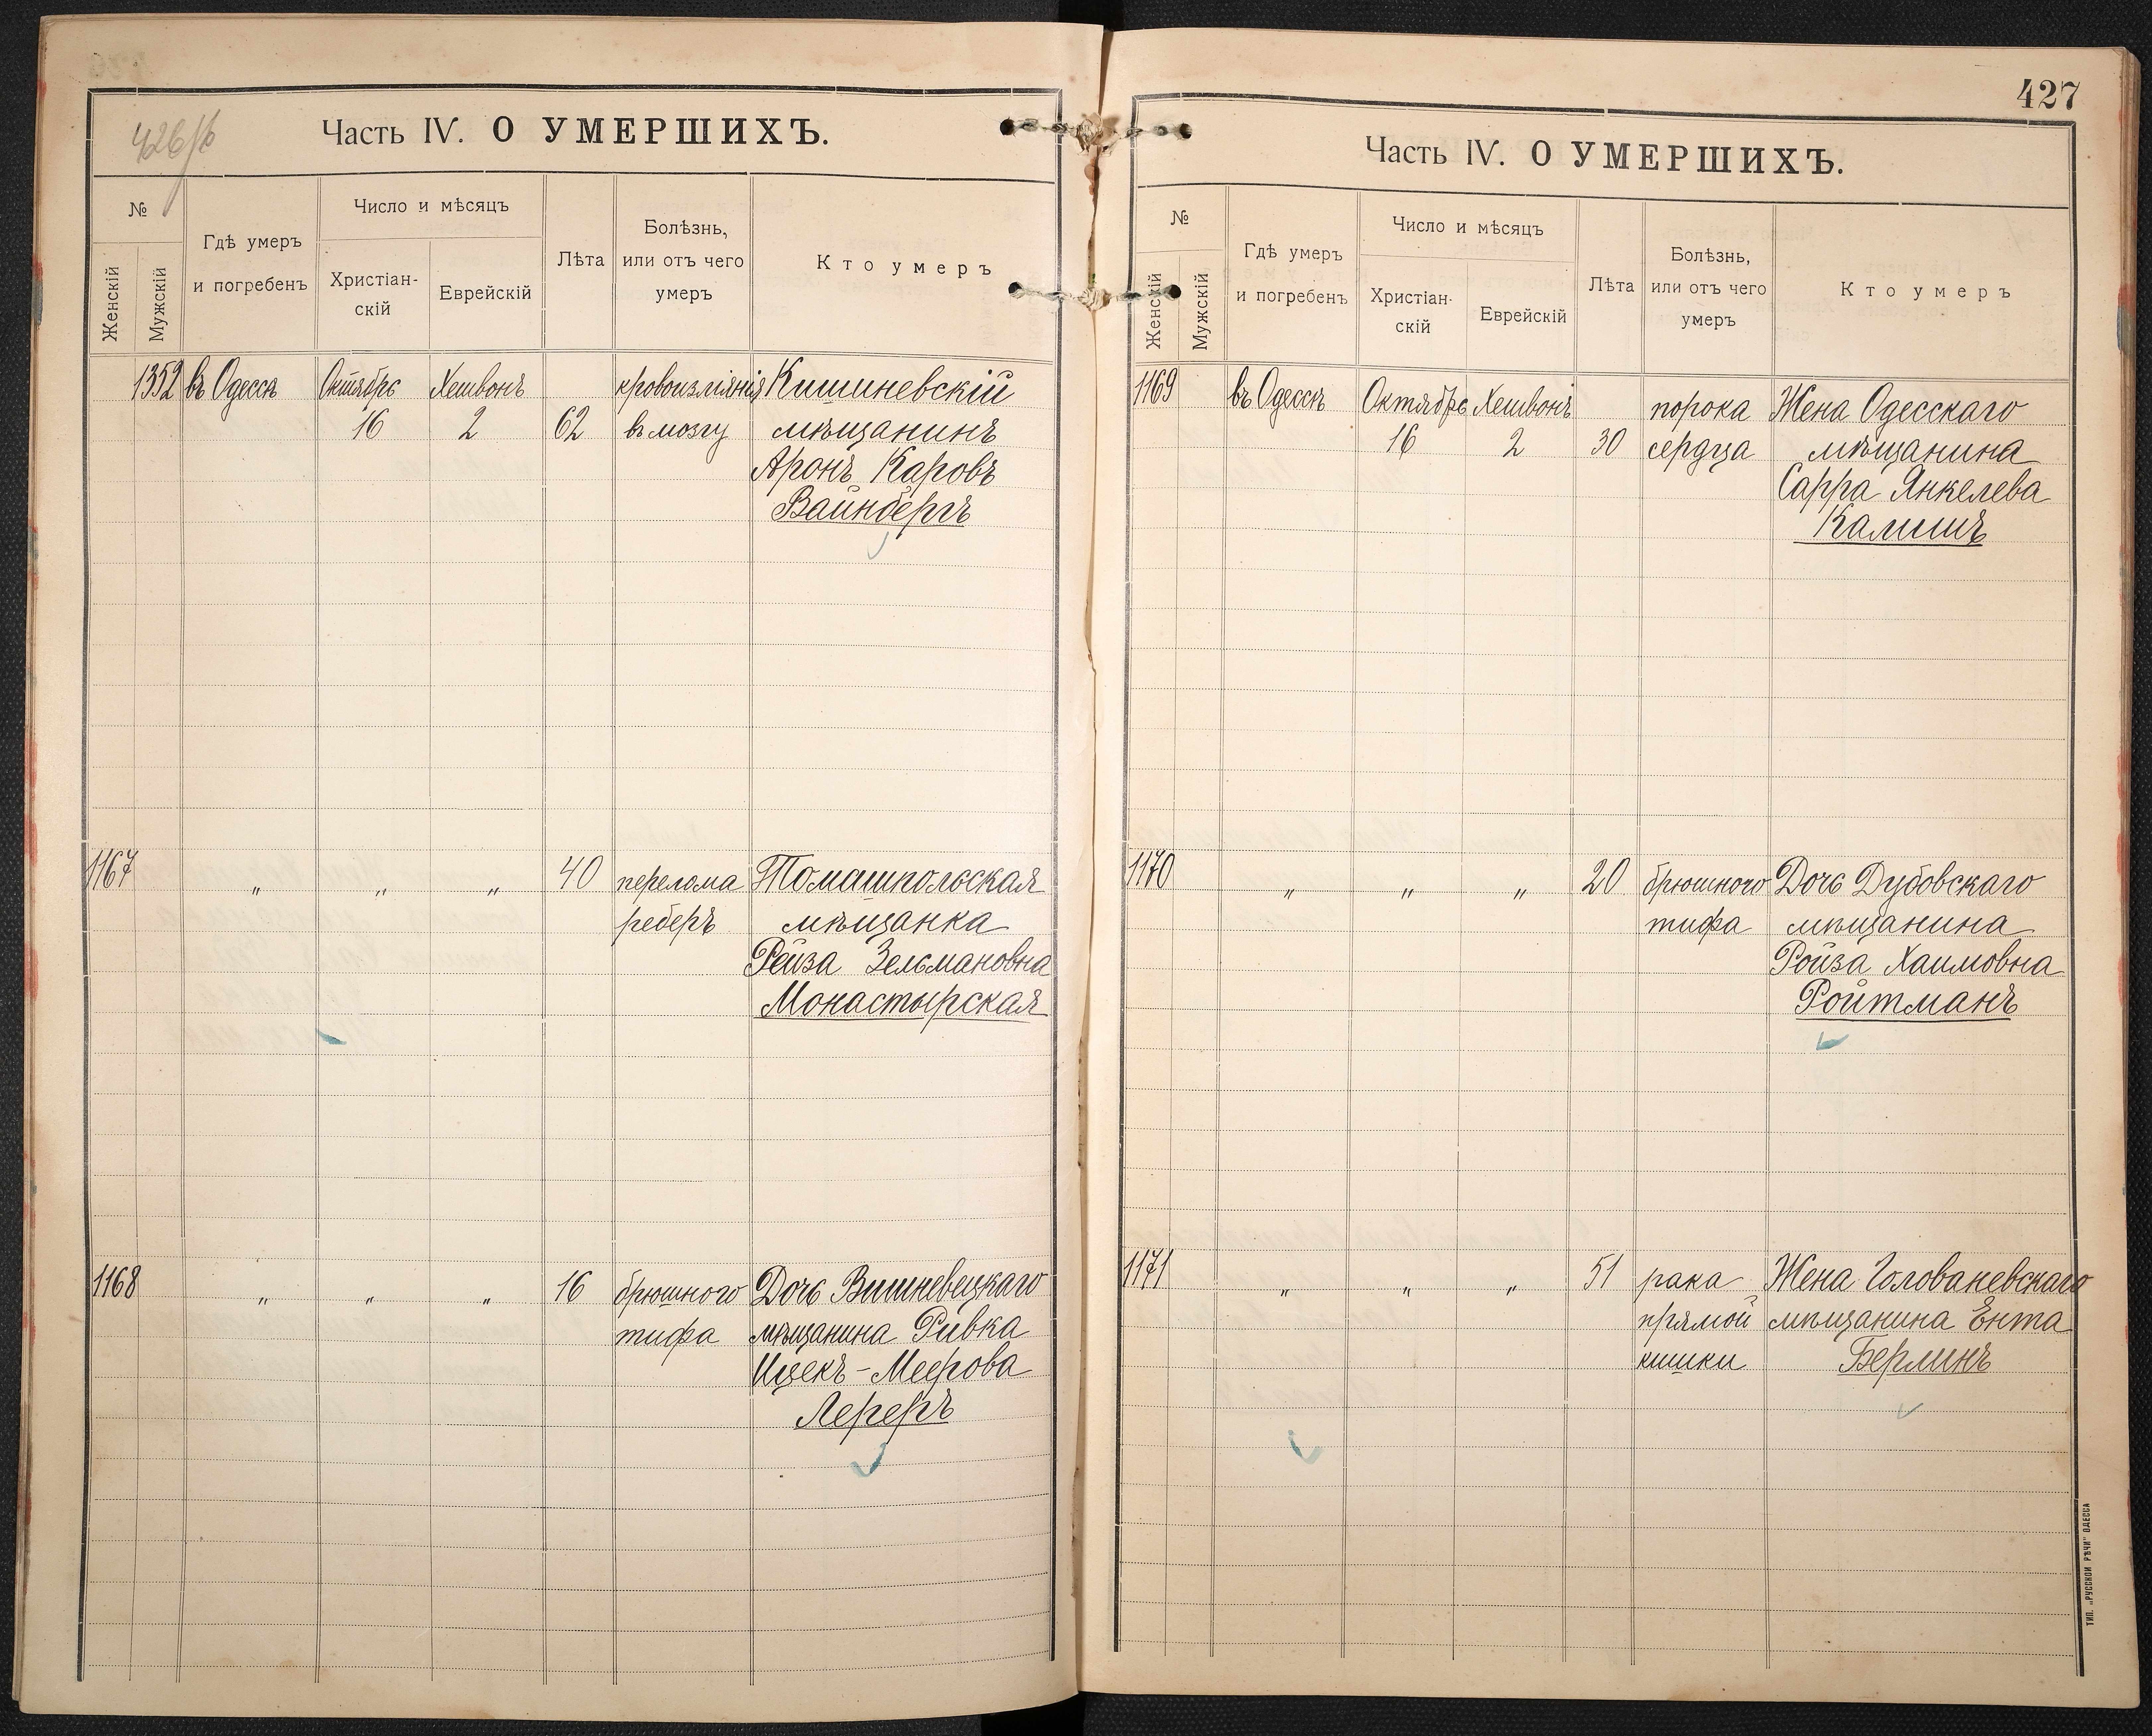 426/б
Часть IV. О УМЕРШИХЪ.
№
Женскій
Мужскій
Гдѣ умеръ
и погребенъ
Число и мѣсяцъ
Христіан-
скій
Еврейскій
Лѣта
Болѣзнь,
или отъ чего
умеръ
Кто умеръ
1352 въ Одессѣ Октябрь Хешвонъ кровоизліянія Кишиневскій
16 2 62 въ мозгу мѣщанинъ
Аронъ Каровъ
Вайнбергъ
1167 „ „ „ 40 перелома Томашпольская
реберъ мѣщанка
Рейза Зельмановна
Монастырская
1168 „ „ „ 16 брюшного Дочь Вишневецкаго
тифа мѣщанина Ривка
Ицекъ-Меерова
Лереръ
427
Часть IV. О УМЕРШИХЪ.
№
Женскій
Мужскій
Гдѣ умеръ
и погребенъ
Число и мѣсяцъ
Христіан-
скій
Еврейскій
Лѣта
Болѣзнь,
или отъ чего
умеръ
Кто умеръ
1169 въ Одессѣ Октябрь Хешвонъ порока Жена Одесскаго
16 2 30 сердца мѣщанина
Сарра Янкелева
Калишъ
1170 „ „ „ 20 брюшного Дочь Дубовскаго
тифа мѣщанина
Ройза Хаимовна
Ройтманъ
1171 „ „ „ 51 рака Жена Голованевскаго
прямой мѣщанина Ента
кишки Берлинъ
ТИП. „РУССКОЙ РѢЧИ" ОДЕССА